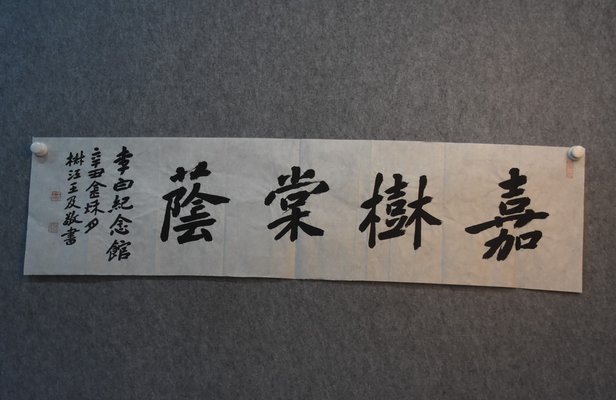 嘉樹棠蔭
李白紀念館
辛丑金秌月
王友敬書